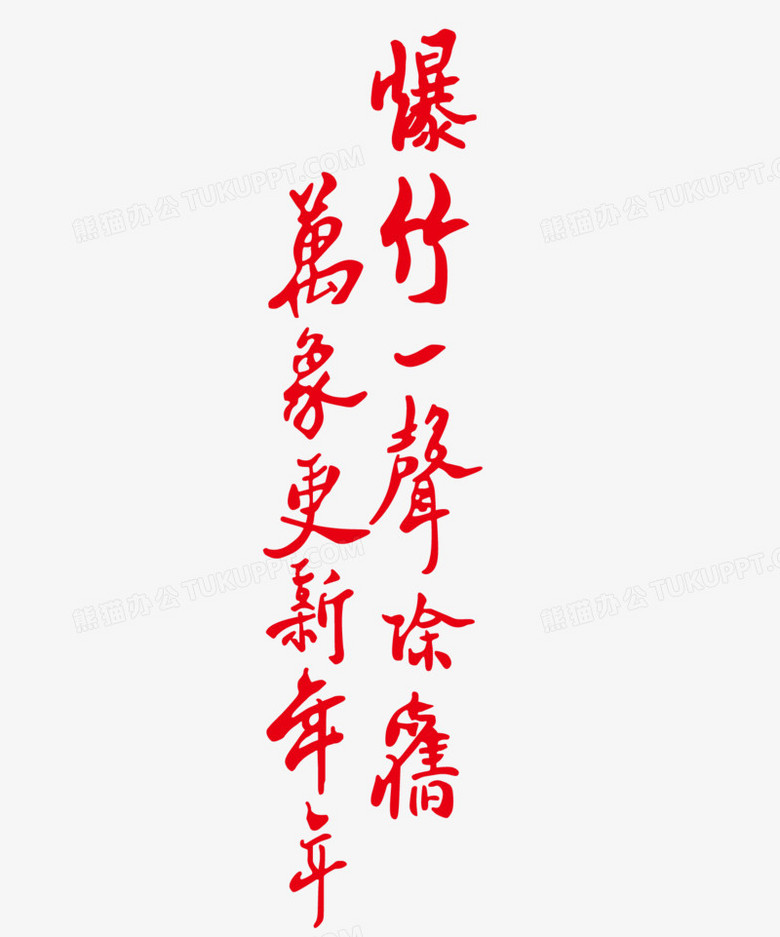 爆竹一聲除舊
萬象更新年年
熊猫办公 TUKUPPT.COM
熊猫办公 TUKUPPT.COM
熊猫办公 TUKUPPT.COM
熊猫办公 TUKUPPT.COM